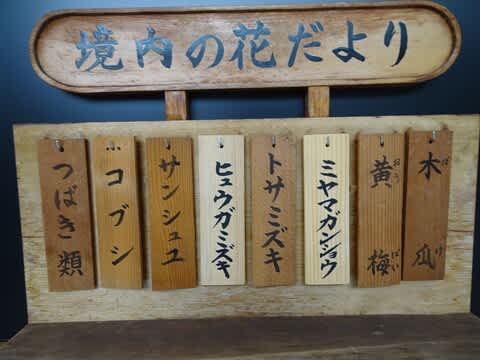 境内の花だより
木瓜
ぼけ
黄梅
おうばい
ミヤマガンショウ
トサミズキ
ヒュウガミズキ
サンシュユ
コブシ
つばき類